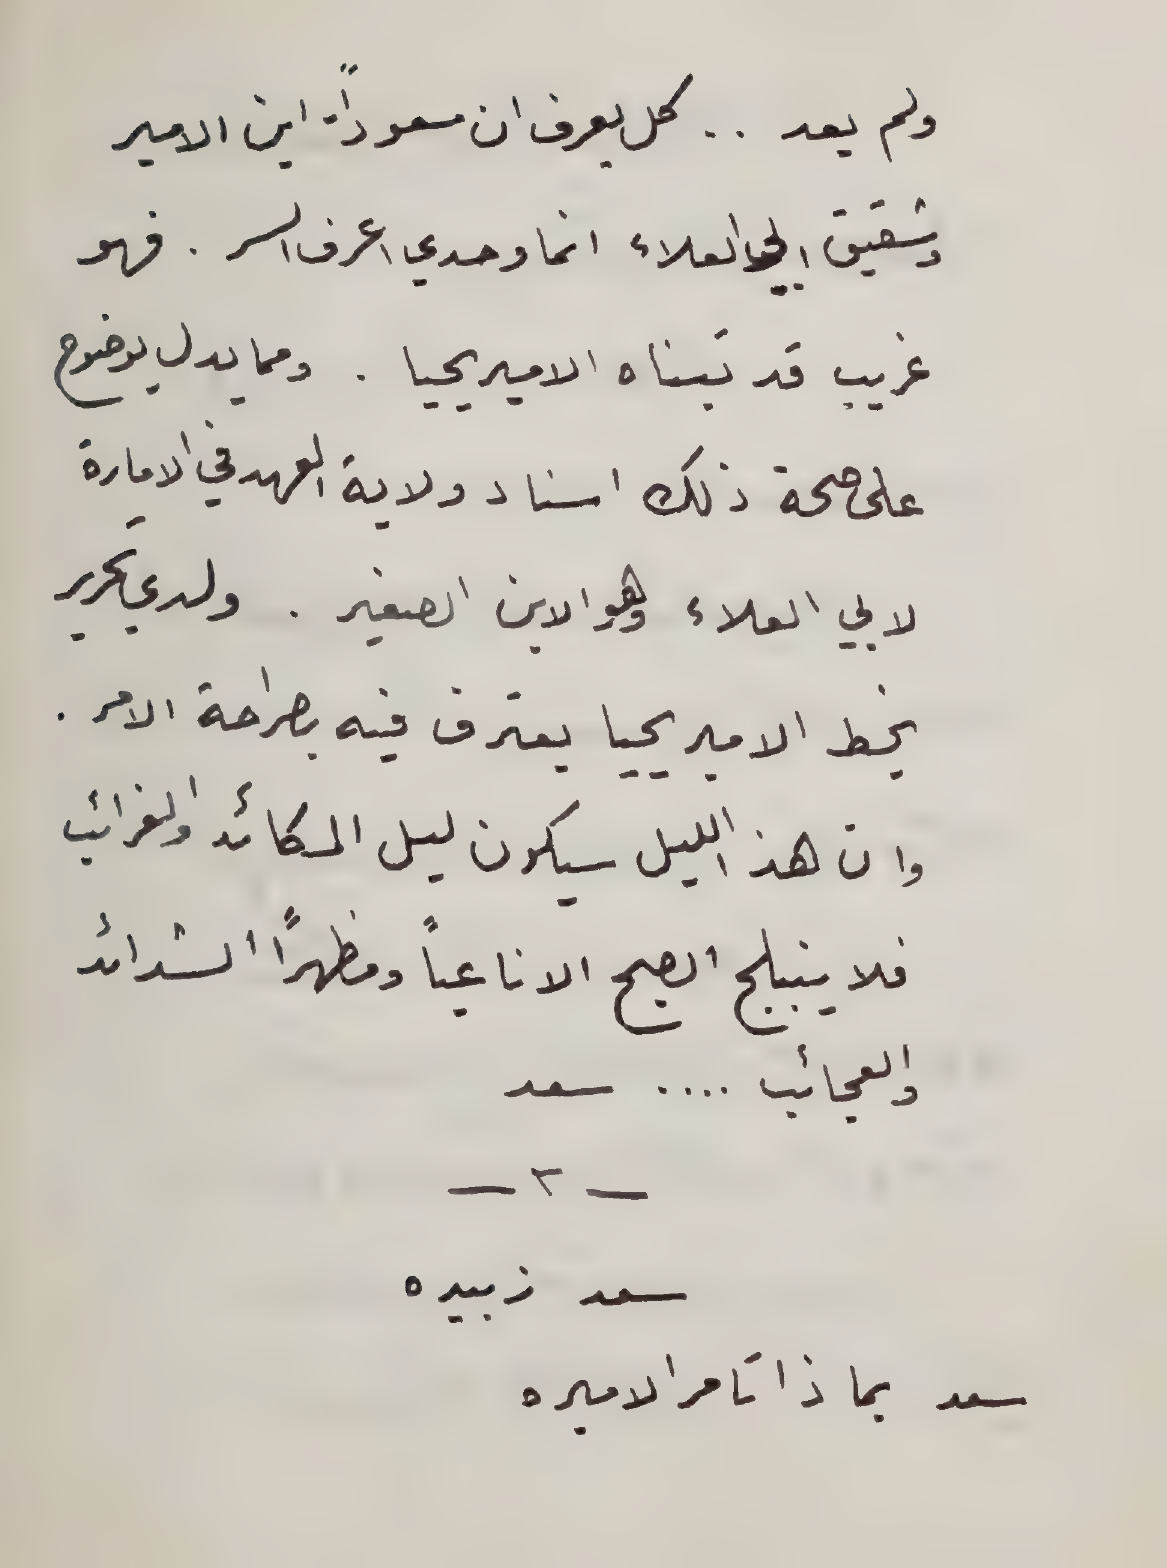 ولم يعد .. كل يعرف ان سعوداً ابن الامير
وشقيق ابي العلاء انما وحدي اعرف السر . فهو
غريب قد تبناه الامير يحيا . ومما يدل بوضوح
على صحة ذلك اسناد ولاية العهد في الامارة
لابي العلاء وهو الابن الصغير . ولدي تحرير
بخط الامير يحيا يعترف فيه بصراحة الامر .
وان هذ الليل سيكون ليل المكائد والغرائب
فلا ينبلج الصبح الا ناعياً ومظهراً الشدائد
والعجائب .... سعد
— ٣ —
سعد زبيده
سعد بماذا تامر الاميره